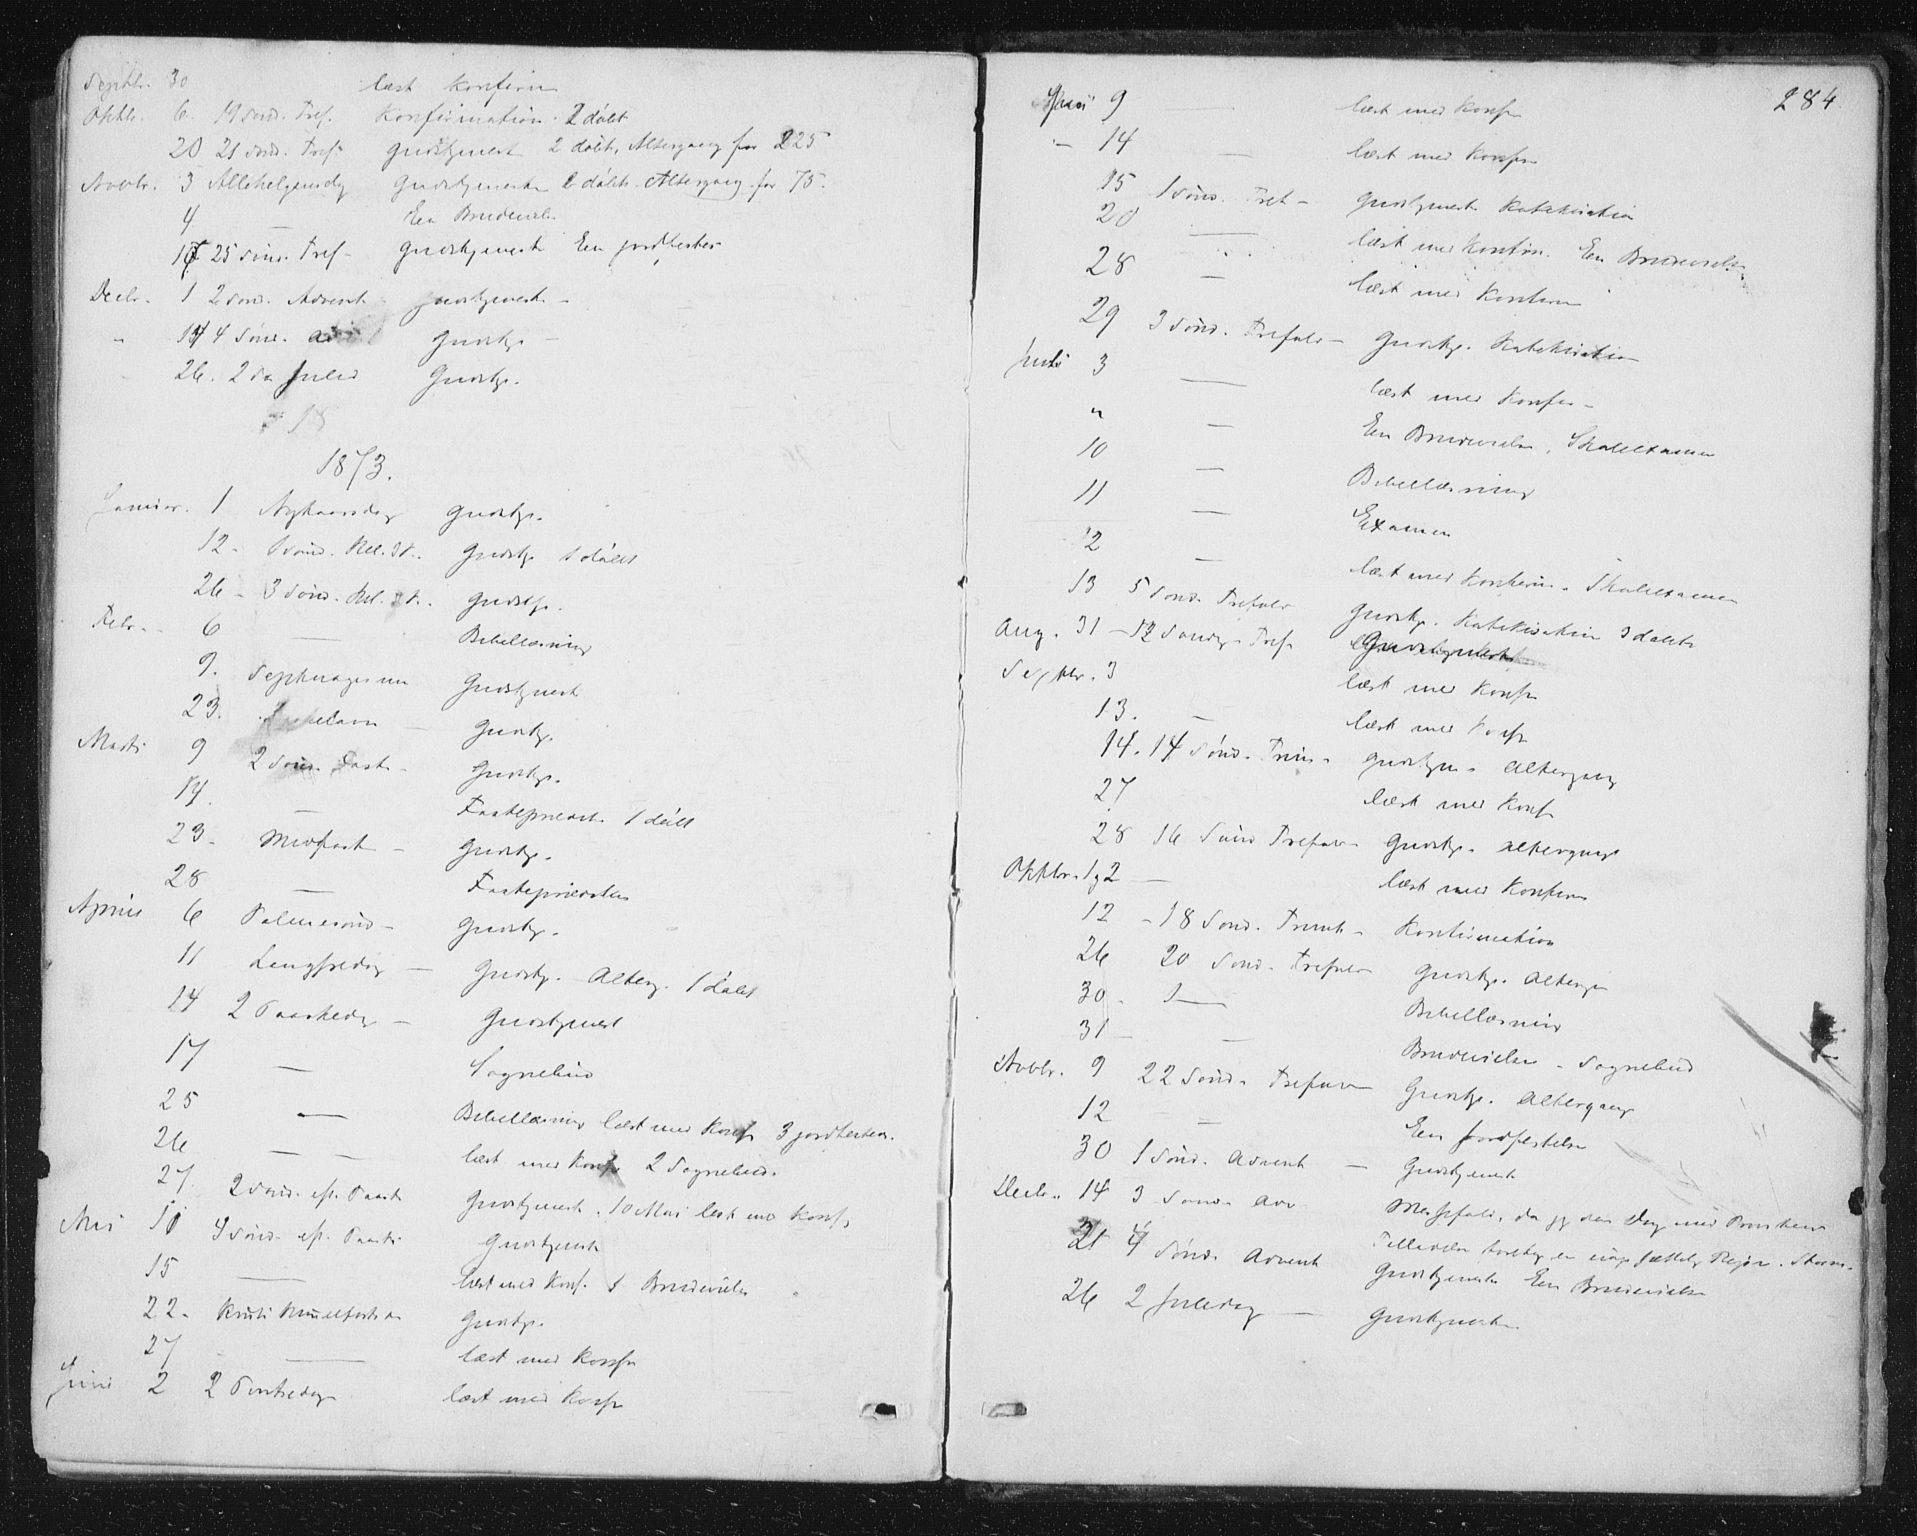 Septbr. 30 læst konfirm
Oktbr. 6. 19 Sønd. Tref. Konfirmation. 2 døbt
20 21 Sønd. Tref. Gudstjeneste 2 døbt, Altergang for 225
Novbr. 3 Allehelgensdg Gudstjeneste døbt Altergang for 75.
4. — En Brudevielse
17 25 Sønd. Tref - Gudstjeneste En jordfestes
Decbr. 1 2 Sønd. Advent Gudstjeneste -
" 4 Sønd. Gudstje -
26. 2den Juled Gudstje.
1873.
Januar. 1 Nytaarsdag Gudstje.
12 - 1 Sønd. Hel. 3 K. Gudstje 1 døbt
26 - 3 Sønd. Hel. 3 K. Gudstje.
Febr. - 6 — Bibellæsning
9. Septuagesima Gudstjenest
23. Gudstje.
Marts 9 2 Sønd. Faste - Gudstje.
14. — Fasteprædik 1 døbt
23 - Midfaste - Gudstje.
28 — Fasteprædiken
April 6 Palmesønd - Gudstje.
11 Langfredag — Gudstj. Alterg. 1 døbt
14 2 Paaskedag — Gudstjenest
17 — Sognebud
25 — Bibellæsning læst med Konf 3 jordfestes.
26 — læst med Konf 2 Sognebud.
27 2 Sønd. eft. Paaske Gudstjenest. 10 Mai læst med Konf.
Mai 11 4 Sønd. eft. Paaske Gudstjeneste
15 — læst med Konf. 1 Brudevielse
22 - Kristi Himmelfartsd Gudstje.
27 — læst med Konf
Juni 2 2 Pintsedag læst med Konf
284.
Juni 9 — læst med Konf
" 14 — læst med Konf
15 1 Sønd. Tref - Gudstjeneste Katekisation
20 — læst med Konfirm. En Brudevielse
28 — læst med Konfirm
29 3 Sønd. Trefold - Gudstje. Katekisation
Juli 3 — læst med Konfir -
" — En Brudevielse, Skoleexamen
10 — Bibellæsning
11 — Examen
12 — læst med Konfirm. Skoleexamen
13 5 Sønd. Trefold Gudstje. Katekisation 3 døbt
Aug. 31 - 12 Søndg. Tref Gudstjeneste
Septbr. 3 læst med Konf
13. — læst med Konf
14. 14 Sønd. Trin. Gudstjen. Altergang
27 læst med Konf
28 16 Sønd Trefold - Gudstje. Altergang
Oktbr. 1, 2 — læst med Konfirm
12 - 18 Sønd. Trinit - Konfirmation
26 20 Sønd. Trefold Gudstje. Alterg
30 - — Bibellæsning
31 — — Brudevielse - Sognebud
Novbr. 9 22 Sønd. Trefold Gudstje. Altergang
12 — En Jordfestelse
30 1 Sønd. Advent — Gudstjenest
Decbr. 14 3 Sønd. Adv Messefald, da jeg den Dag med Provstens
Tilladelse foretog en Rejse.
21 4 Sønd. Advent Gudstjeneste En Brudevielse
26 2 Juledag — Gudstjeneste